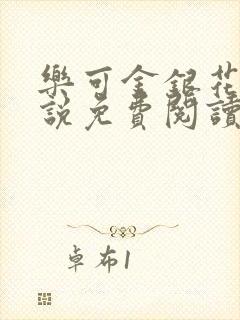 樂可金銀花
說免費閱讀
卓布1